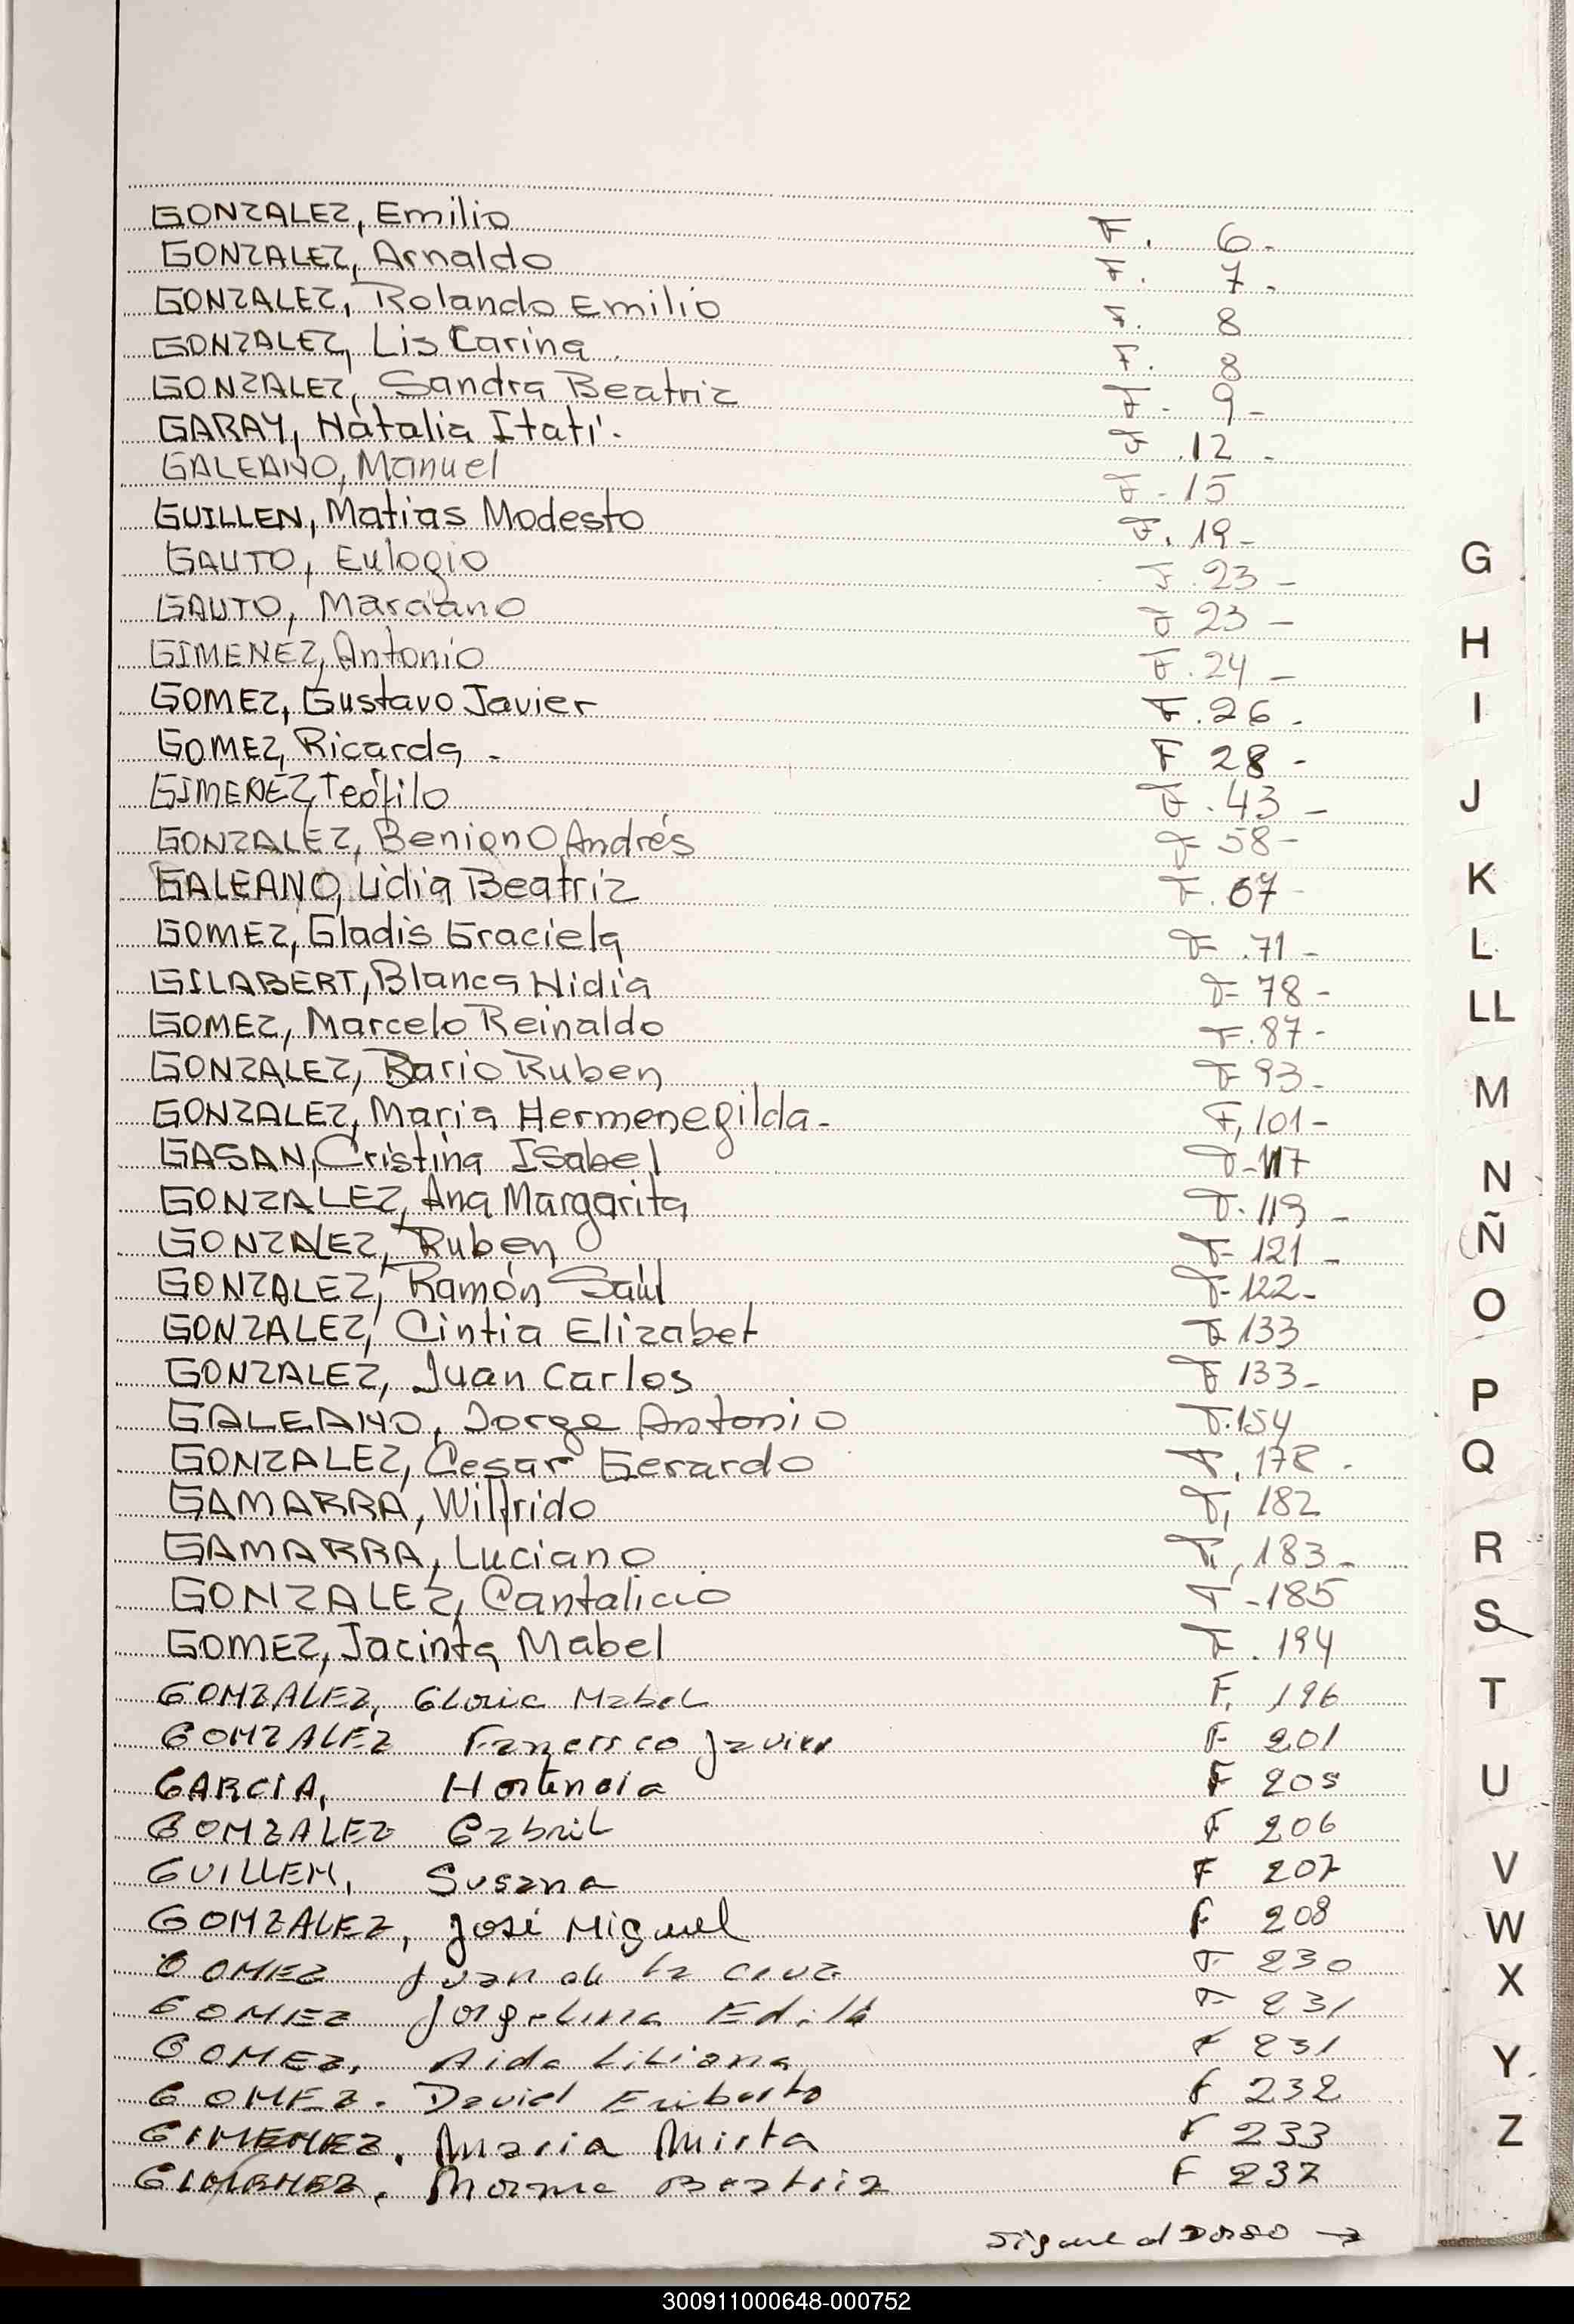 GONZALEZ, Emilio F. 6-
GONZALEZ, Arnaldo F. 7-
GONZALEZ, Rolando Emilio F. 8
GONZALEZ, Lis Carina F. 8
GONZALEZ, Sandra Beatriz F- 9-
GARAY, Natalia Itatí. F .12 -
GALEANO, Manuel F-15
GUILLEN, Matias Modesto F. 19-
GAUTO, Eulogio F.23-
GAUTO, Marciano F 23-
GIMENEZ, Antonio F.24-
GOMEZ, Gustavo Javier F.26.
GOMEZ, Ricarda - F 28-
GIMENEZ, Teófilo F.43-
GONZALEZ, Benigno Andrés F 58-
GALEANO, Lidia Beatriz F.67-
GOMEZ, Gladis Graciela F.71-
GILABERT, Blanca Nidia F 78-
GOMEZ, Marcelo Reinaldo F.87-
GONZALEZ, Ruben F 93-
GONZALEZ, Maria Hermenegilda- F,101-
GASAN, Cristina Isabel F-117
GONZALEZ, Ana Margarita F.119-
GONZALEZ, Ruben F-121-
GONZALEZ, Ramón Saúl F-122-
GONZALEZ, Cintia Elizabet F 133
GONZALEZ, Juan Carlos F 133-
GALEANO, Jorge Antonio F.154
GONZALEZ, Cesar Gerardo F,178-
GAMARRA, Wilfrido F, 182
GAMARRA, Luciano F, 183-
GONZALEZ, Cantalicio F-185
GOMEZ, Jacinta Mabel F.194
GONZALEZ, Gloria Mabel F. 196
GONZALEZ Francisco Javier F 201
GARCIA, Hortencia F 205
GONZALEZ Gabriel F 206
GUILLEN, Susana F 207
GONZALEZ, José Miguel F 208
GOMEZ Juan de la Cruz F 230
GOMEZ Jorgelina F 231
GOMEZ, Aida Liliana F 231
GOMEZ. David Eriberto F 232
GIMENEZ, Maria Mirta F 233
GIMENEZ, Norma Beatriz F 237
Sigue al Dorso →
G
H
I
J
K
L
LL
M
N
Ñ
O
P
Q
R
S
T
U
V
W
X
Y
Z
300911000648-000752